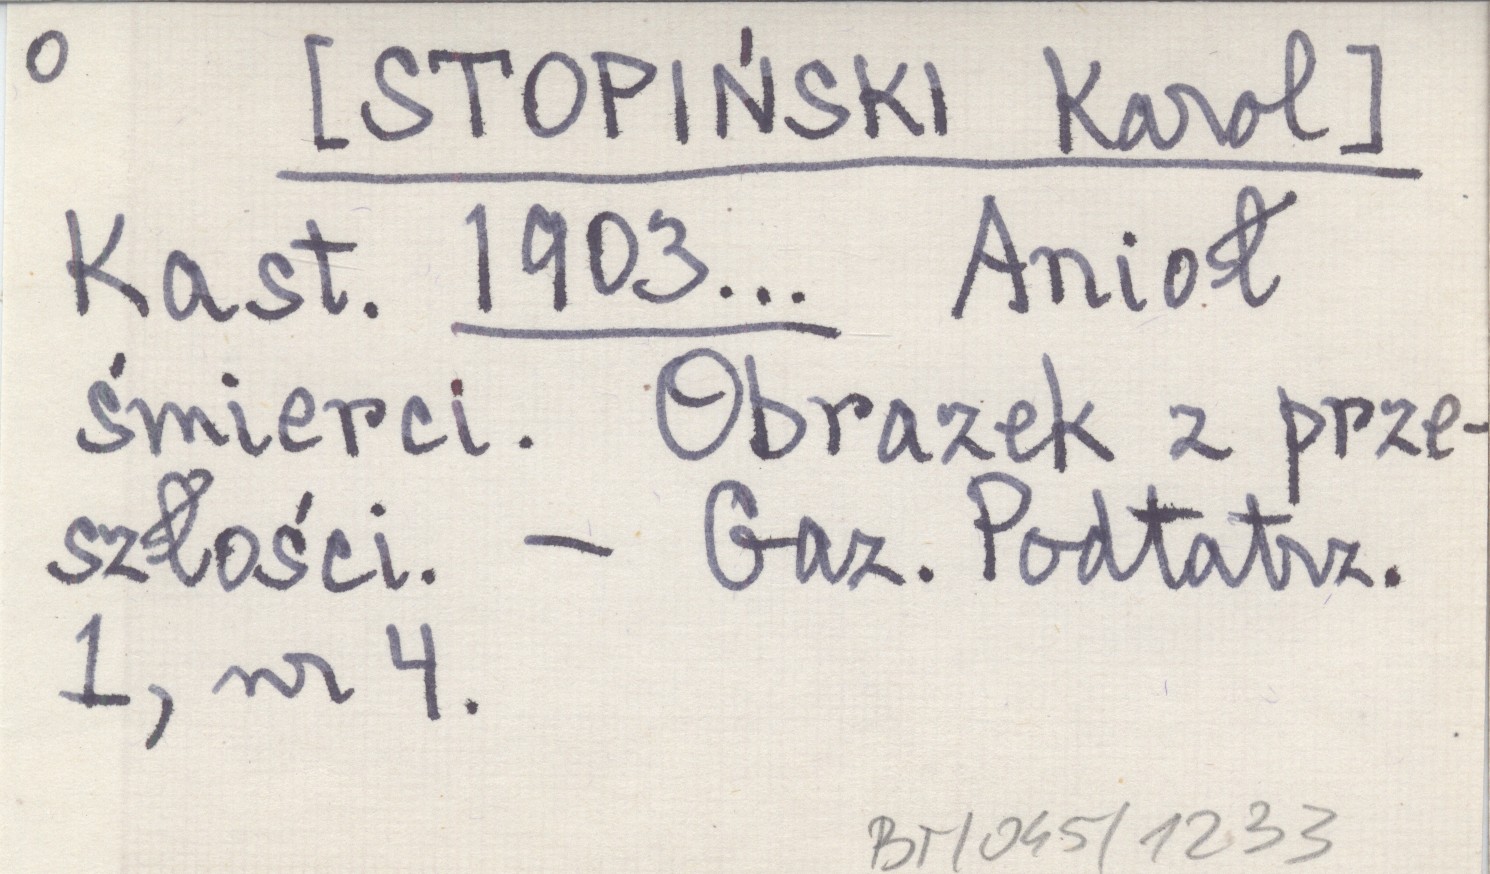 O [STOPIŃSKI Karol]
Kast. 1903... Anioł
śmierci. Obrazek z prze-
szłości. — Gaz. Podtatrz.
1, nr 4.
BT/045/1233